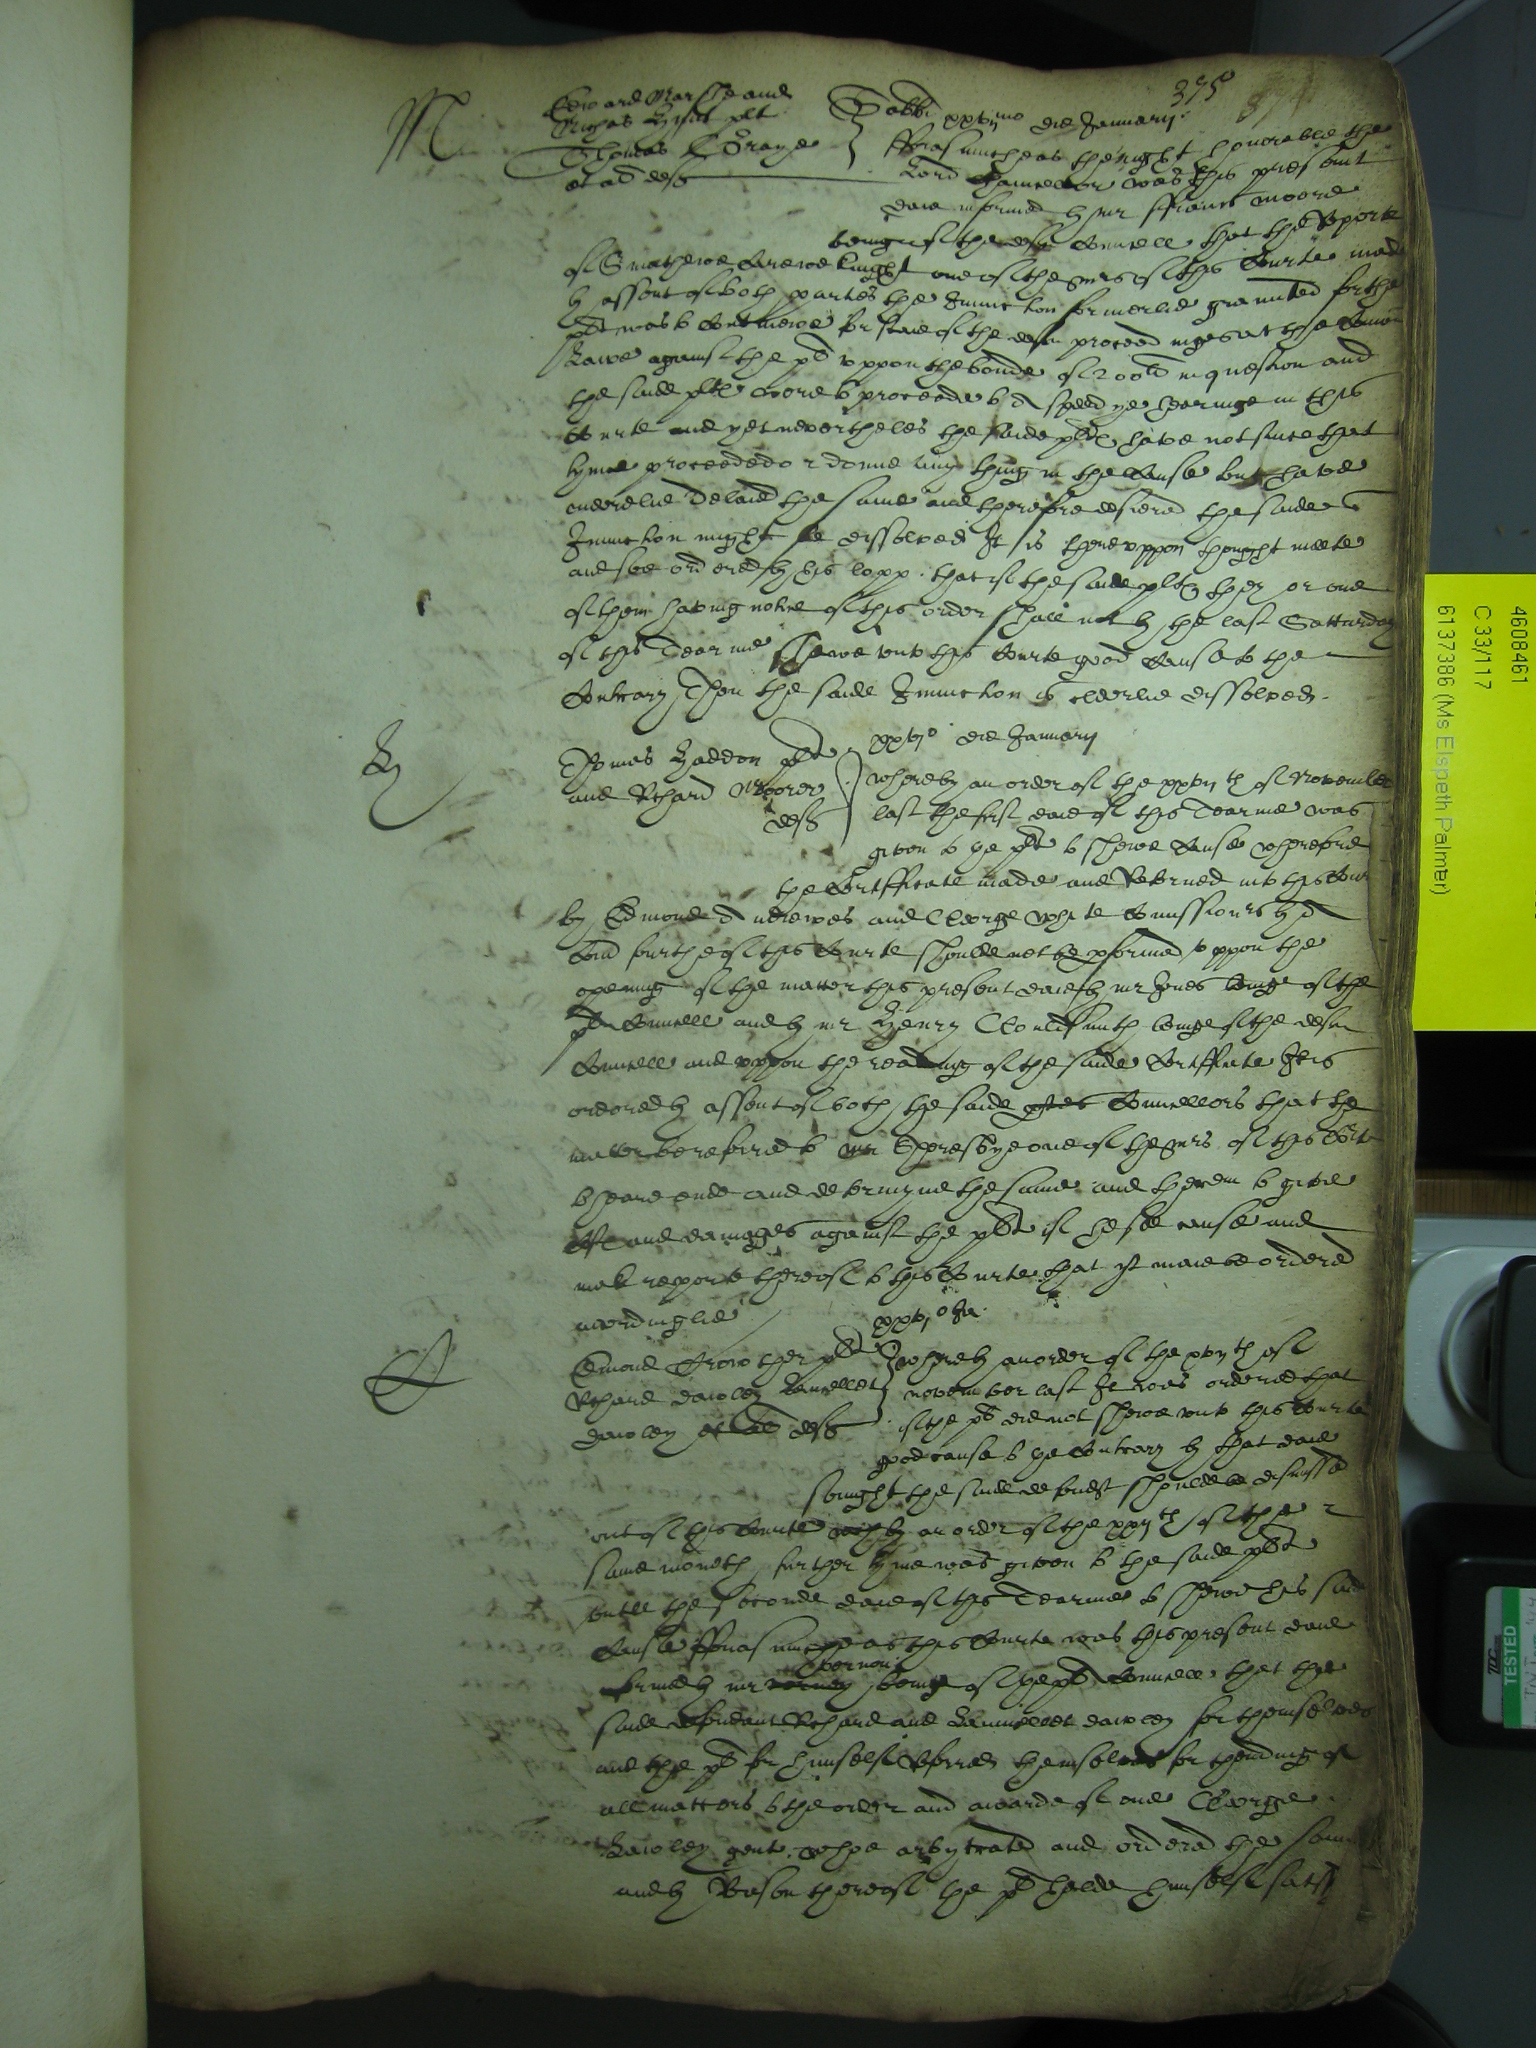 375
M
Edward Marshe and
Thomas Hunt plt
Thomas Graye
et al deftes
Sabbti xxvijmo die January
fforasmuche as the right honorable the
Lord Chauncellor was this present
daie informed by mr ffrauncs Moore
being of the deftes Councell that the Reporte
of Sr mathewe Carewe knight one of the mrs of this Courte made
by assent of both parties the Iniunction formerlie graunted for the
plt was to Contynewe for staie of the deftes proceedinges at the Comon
Lawe against the plt vppon the bonde of 200li in question and
the saide pltes were to proceede to a speedye hearinge in this
Courte and yet neverthelesse the saide pltes have not since that
tyme proceeded or donne any thing in the Cause but have
meerelie delaied the same and therefore desiered the saide
Iniunction might be dissolved It is therevppon thought meete
and soe ordered by his lopp. that if the saide pltes they or one
of them having notice of this order shall not by the last Satturday
of this Tearme shewe vnto this Courte good Cause to the
Contrary Then the saide Iniunction is cleerlie dissolved.
H
Thomas Haddon plt
and Richard Moorer
deft
xxvjo die January
whereby an order of the xxvijth of November
last the first daie of this Tearme was
given to ye plt to shewe Cause wherefore
the Certifficate made and Retorned into this Court
by Edmond Andrewes and George White Commissioners by
Comd further of this Courte should not be performed vppon the
opening of the matter this present daie by mr Jones being of the
plt Councell and by mr Henry Gouldsmith being of the deftes
Councell and vppon the reading of the saide Certifficate It is
ordered by assent of both the saide pties Councellors that the
matter be referred to mr one of the mrs of this Courte
to heare ende and determyne the same and therein to give
Costes and damages against the plt if he see cause and
make reporte thereof to this Courte that yt maie be ordered
accordinglie
C
Edmond Crowther plt
Richard Dawley Lancellet
Dawley et al deftes
xxvjo Ja.
whereby an order of the xvijth of
november last It was ordered that
if the plt did not shewe vnto this Courte
good cause to ye Contrary by that daie
senight the saide defendts shoulde be dismissed
out of this Courte by an order of the xxijth of the
same moneth further tyme was given to the saide plt
vntill the seconde daie of this Tearme to shewe his said
Cause fforasmuche as this Courte was this present daie
formed by mr vernon being of ye plt Councell that the
saide defendant Richard and Launcellet dawley for themselves
and the plt for himself referred themselves for thending of
all matters to the order and awarde of one George
Lawley gent. whoe arbytrated and ordered the same
and by Reason thereof the plt helde himself satis
4608461
C 33/117
6137386 (Ms Elspeth Palmer)
TESTED